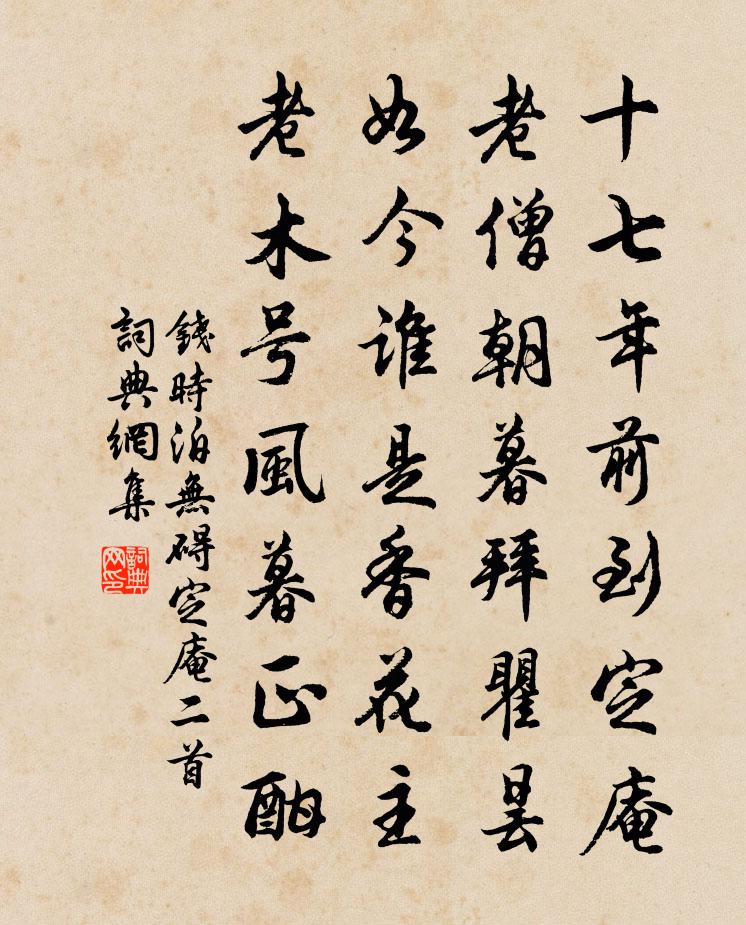 十七年前到定庵
老僧朝暮拜瞿曇
如今誰是香花主
老木号風暮正酣
錢時泊無碍定庵二首
詞典網集
詞典网印